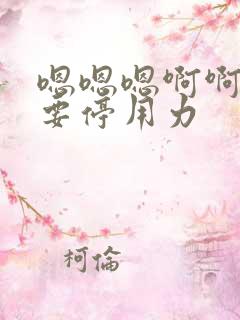 嗯嗯嗯啊啊
要停用力
柯倫